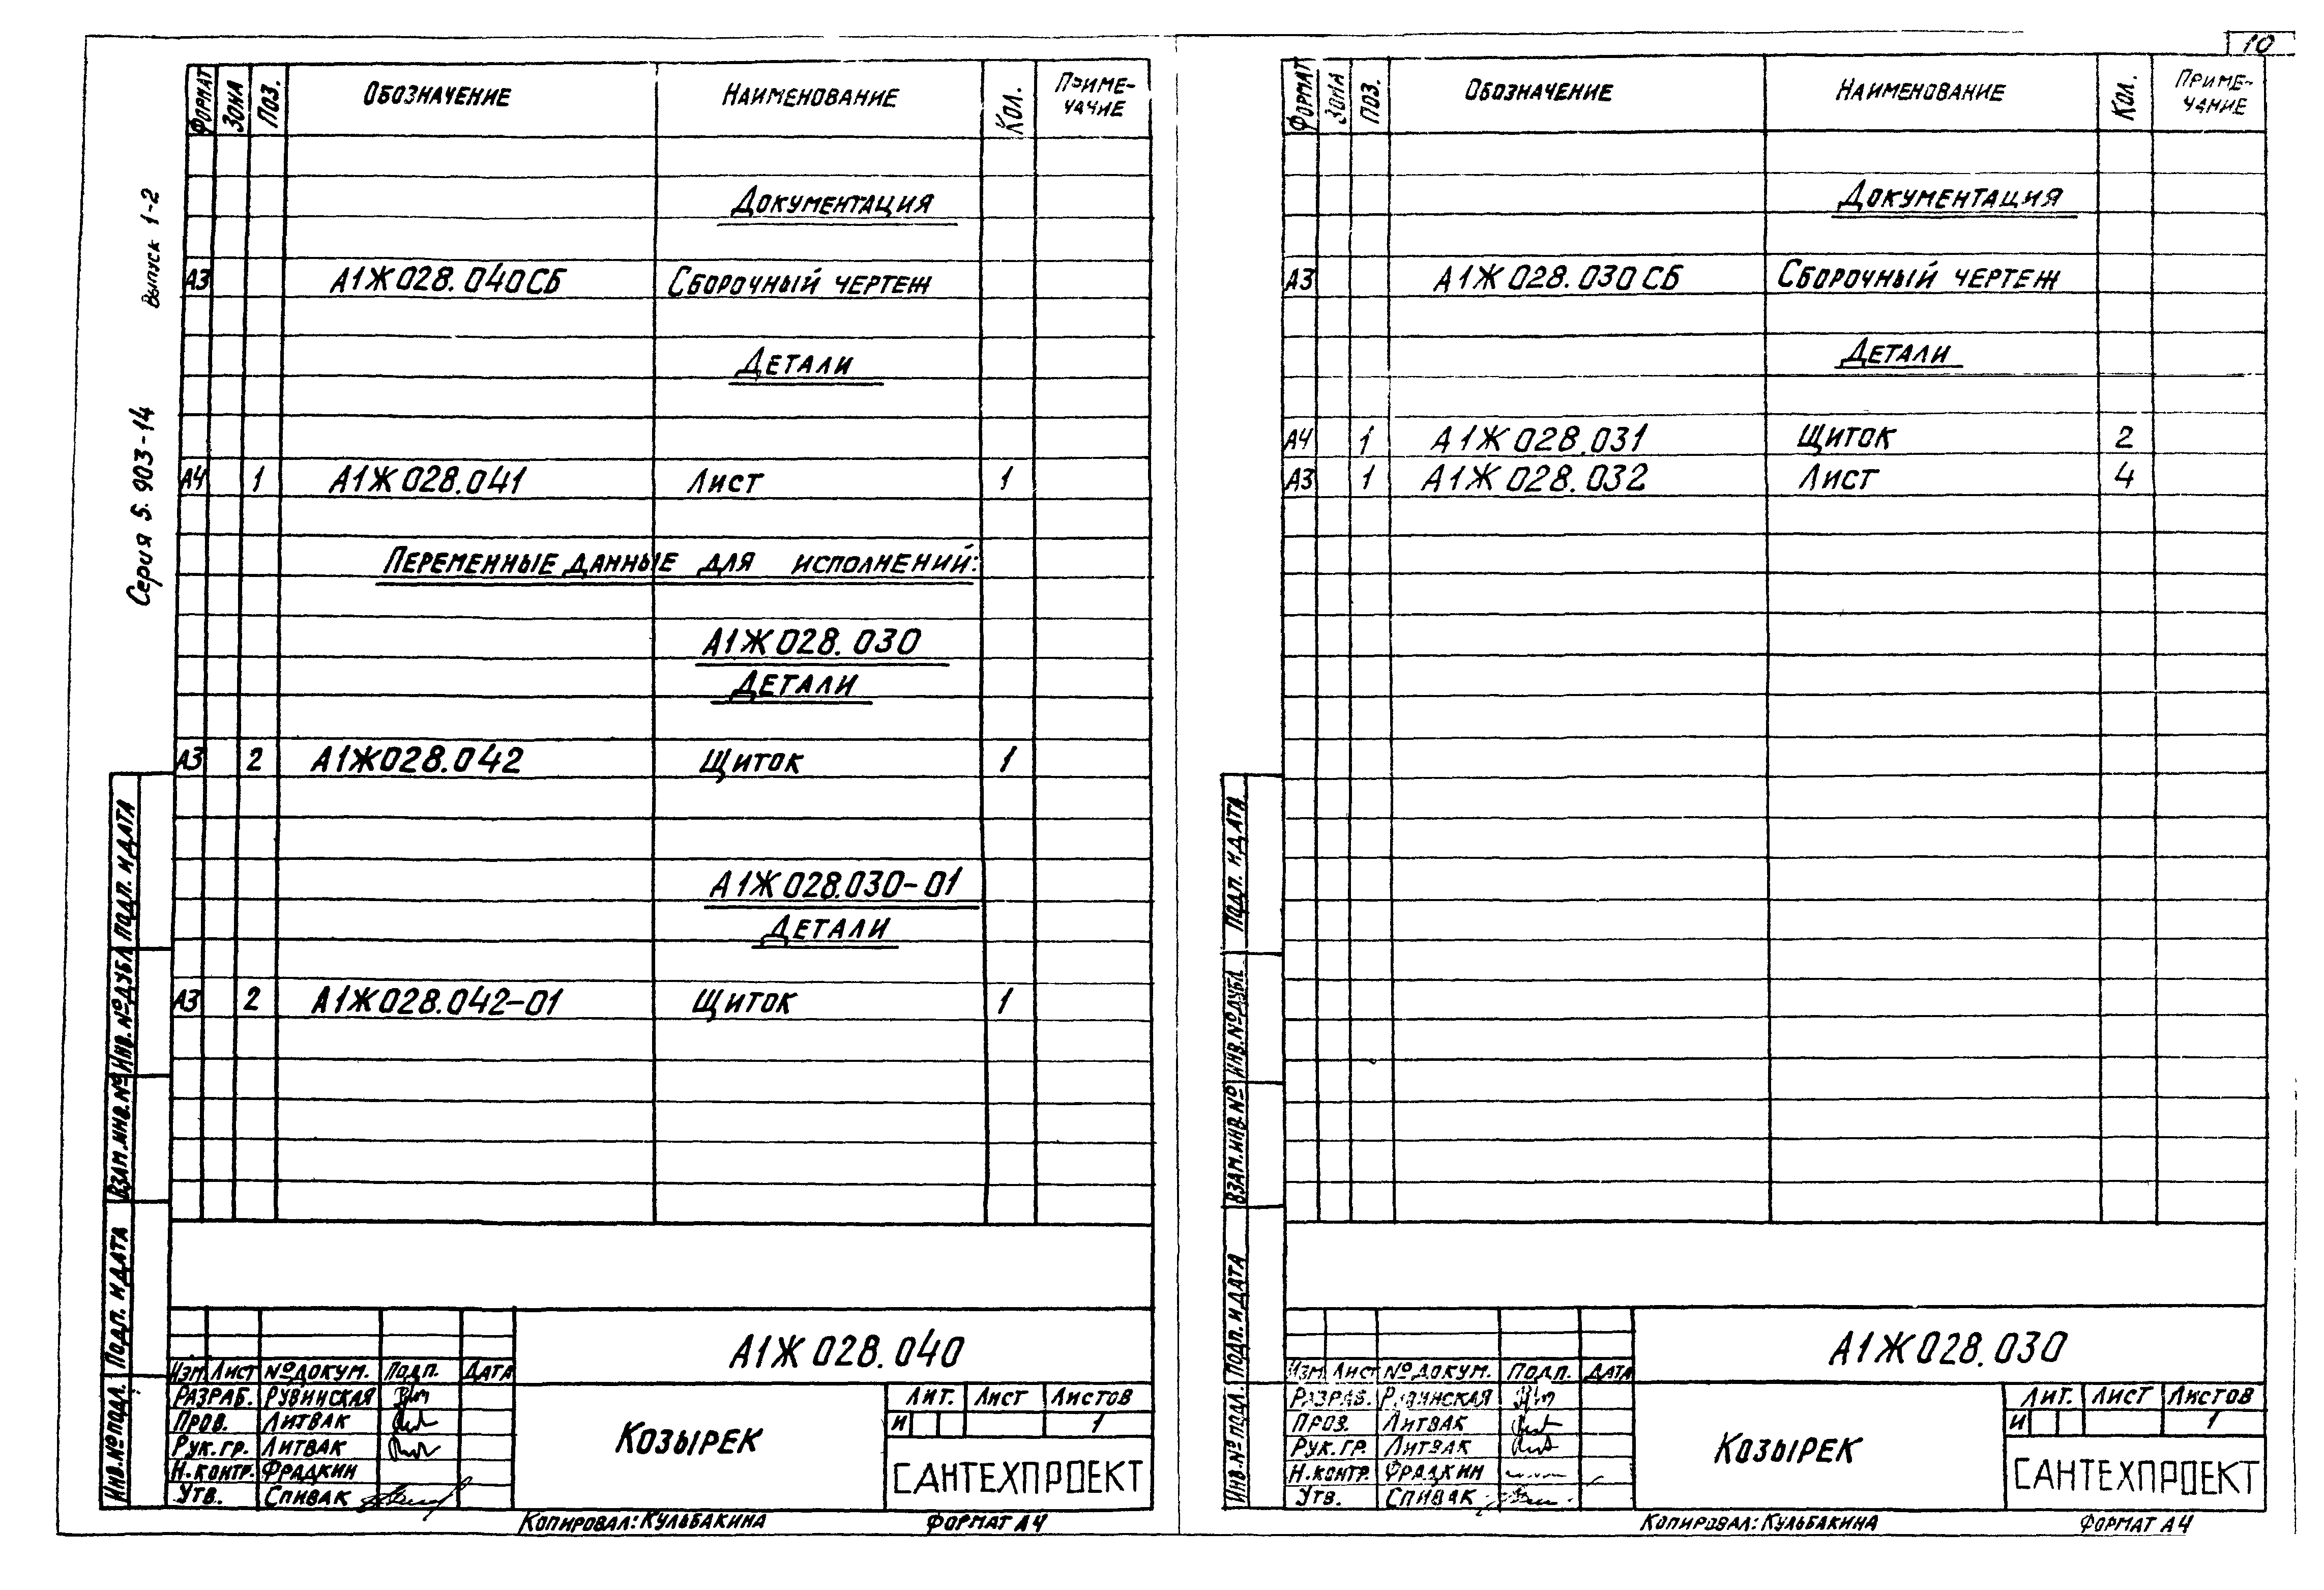 10
Серия 5.903-14 Выпуск 1-2
ФОРМАТ ЗОНА ПОЗ. ОБОЗНАЧЕНИЕ НАИМЕНОВАНИЕ КОЛ. ПРИМЕ-
ЧАЧИЕ
ДОКУМЕНТАЦИЯ
А3 А1Ж028.040СБ СБОРОЧНЫЙ ЧЕРТЕЖ
ДЕТАЛИ
А4 1 А1Ж028.041 ЛИСТ 1
ПЕРЕМЕННЫЕ ДАННЫЕ ДЛЯ ИСПОЛНЕНИЙ:
А1Ж028.030
ДЕТАЛИ
А3 2 А1Ж028.042 ЩИТОК 1
А1Ж028.030-01
ДЕТАЛИ
А3 2 А1Ж028.042-01 ЩИТОК 1
ПОДП. И ДАТА
ИНВ.№ДУБЛ
ВЗАМ.ИНВ.№
ПОДП. И ДАТА
ИНВ.№ПОДЛ.
А1Ж028.040
ИЗМ ЛИСТ №ДОКУМ. ПОДП. ДАТА
РАЗРАБ. РУВИНСКАЯ
ПРОВ. ЛИТВАК
РУК.ГР. ЛИТВАК
Н.КОНТР. ФРАДКИН
УТВ. СПИВАК
КОЗЫРЕК
ЛИТ. ЛИСТ ЛИСТОВ
И 1
САНТЕХПРОЕКТ
КОПИРОВАЛ: КУЛЬБАКИНА ФОРМАТ А4
ФОРМАТ ЗОНА ПОЗ. ОБОЗНАЧЕНИЕ НАИМЕНОВАНИЕ КОЛ. ПРИМЕ-
ЧАНИЕ
ДОКУМЕНТАЦИЯ
А3 А1Ж028.030СБ СБОРОЧНЫЙ ЧЕРТЕЖ
ДЕТАЛИ
А4 1 А1Ж028.031 ЩИТОК 2
А3 1 А1Ж028.032 ЛИСТ 4
ПОДП. И ДАТА
ИНВ.№ДУБЛ.
ВЗАМ.ИНВ.№
ПОДП. И ДАТА
ИНВ.№ПОДЛ.
А1Ж028.030
ИЗМ ЛИСТ №ДОКУМ. ПОДП. ДАТА
РАЗРАБ. РУВИНСКАЯ
ПРОВ. ЛИТВАК
РУК.ГР. ЛИТВАК
Н.КОНТР. ФРАДКИН
УТВ. СПИВАК
КОЗЫРЕК
ЛИТ. ЛИСТ ЛИСТОВ
И 1
САНТЕХПРОЕКТ
КОПИРОВАЛ: КУЛЬБАКИНА ФОРМАТ А4